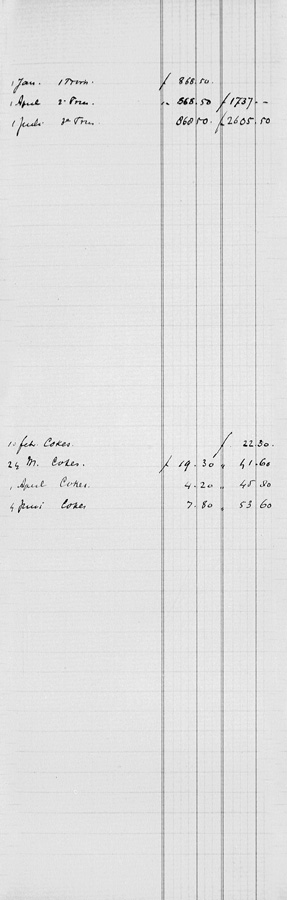 1 Jan. 1 Trm. ƒ 868.50.
1 April 2e Trm. " 868.50 ƒ 1737.-
1 Juli 3e Trm. 868.50. ƒ 2605.50
10 feb. Cokes ƒ 22.30.
24 M. Cokes. ƒ 19.30 " 41.60
1 April Cokes. 4.20 " 45.80
4 Juni Cokes 7.80 " 53.60